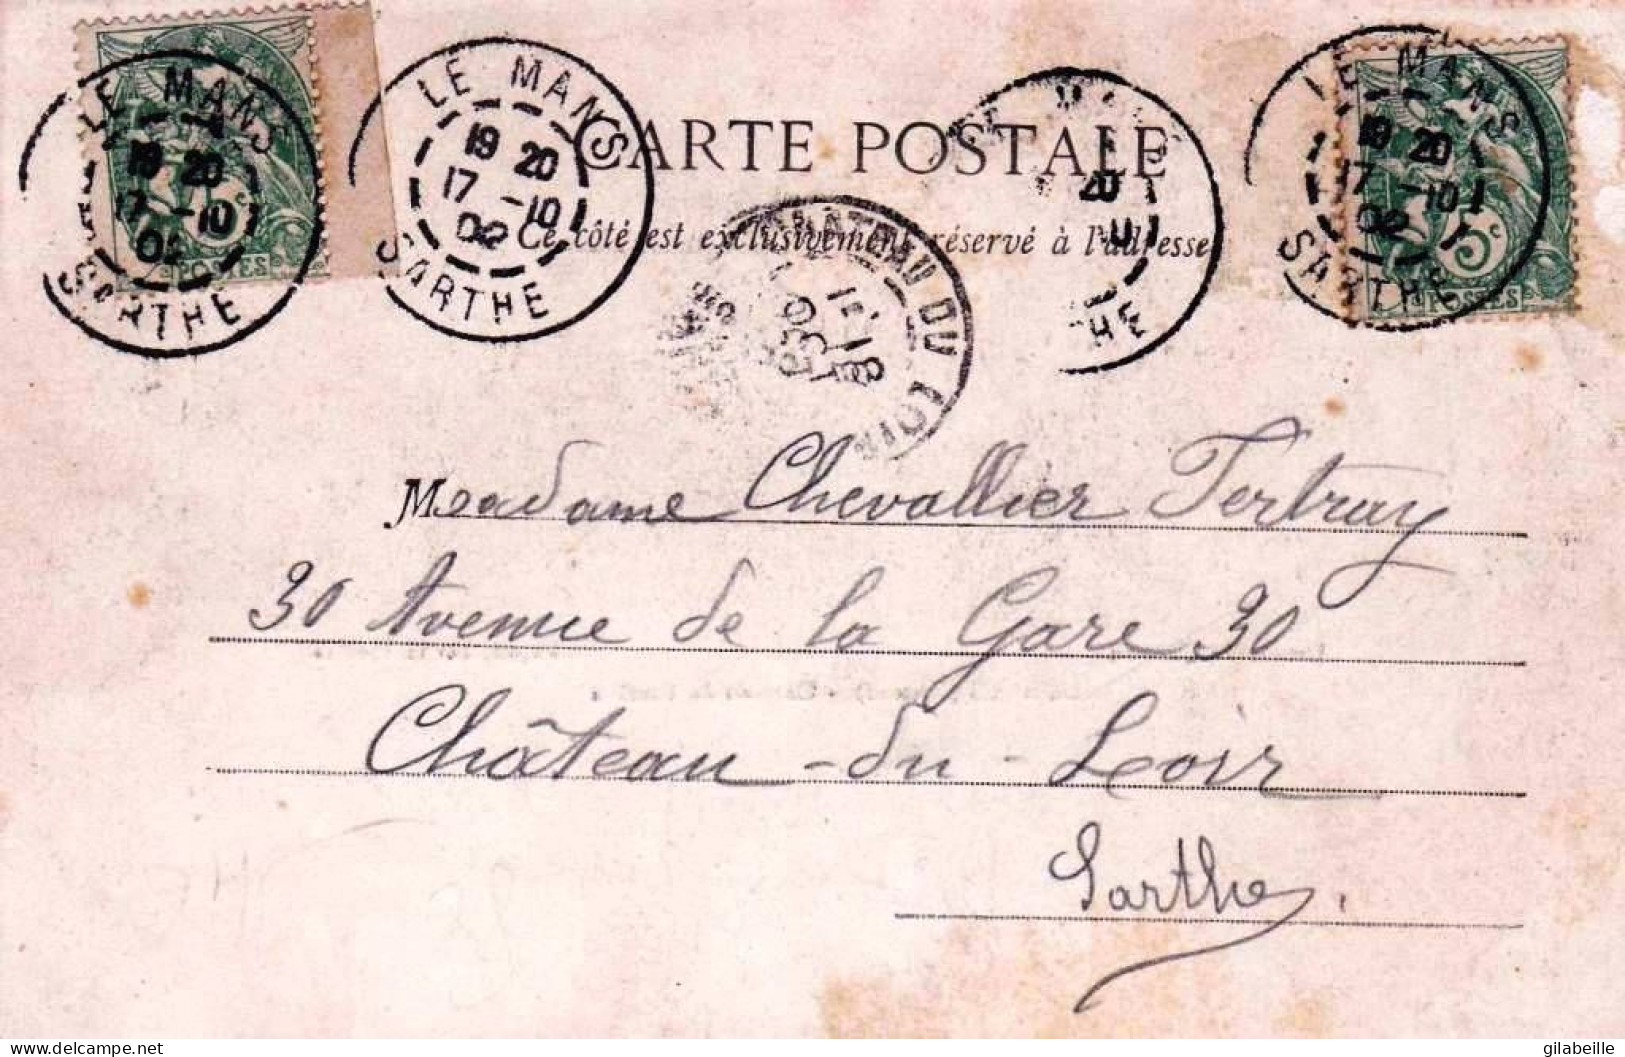 LE MANS
19 20
17 -10
02
SARTHE
5c
POSTES
LE MANS
19 20
17 -10
02
SARTHE
20
HE
LE MANS
19 20
17 -10
02
SARTHE
5c
POSTES
CARTE POSTALE
Ce côté est exclusivement réservé à l'adresse
CHATEAU DU LOIR
18
OCT
Madame Chevallier Tertray
30 Avenue de la Gare 30
Château-du-Loir
Sarthe.
gilabeille